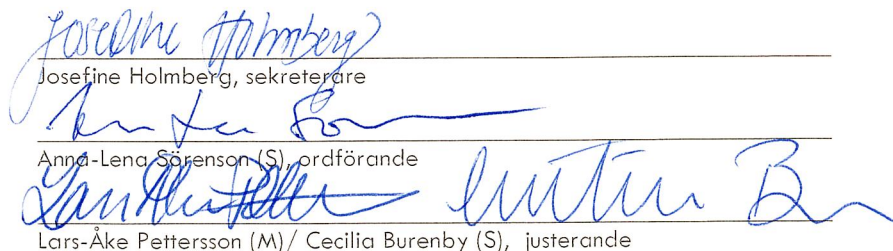 Josefine Holmberg
Josefine Holmberg, sekreterare
Anna-Lena Sörenson (S), ordförande
Lars-Åke Pettersson (M)/ Cecilia Burenby (S), justerande